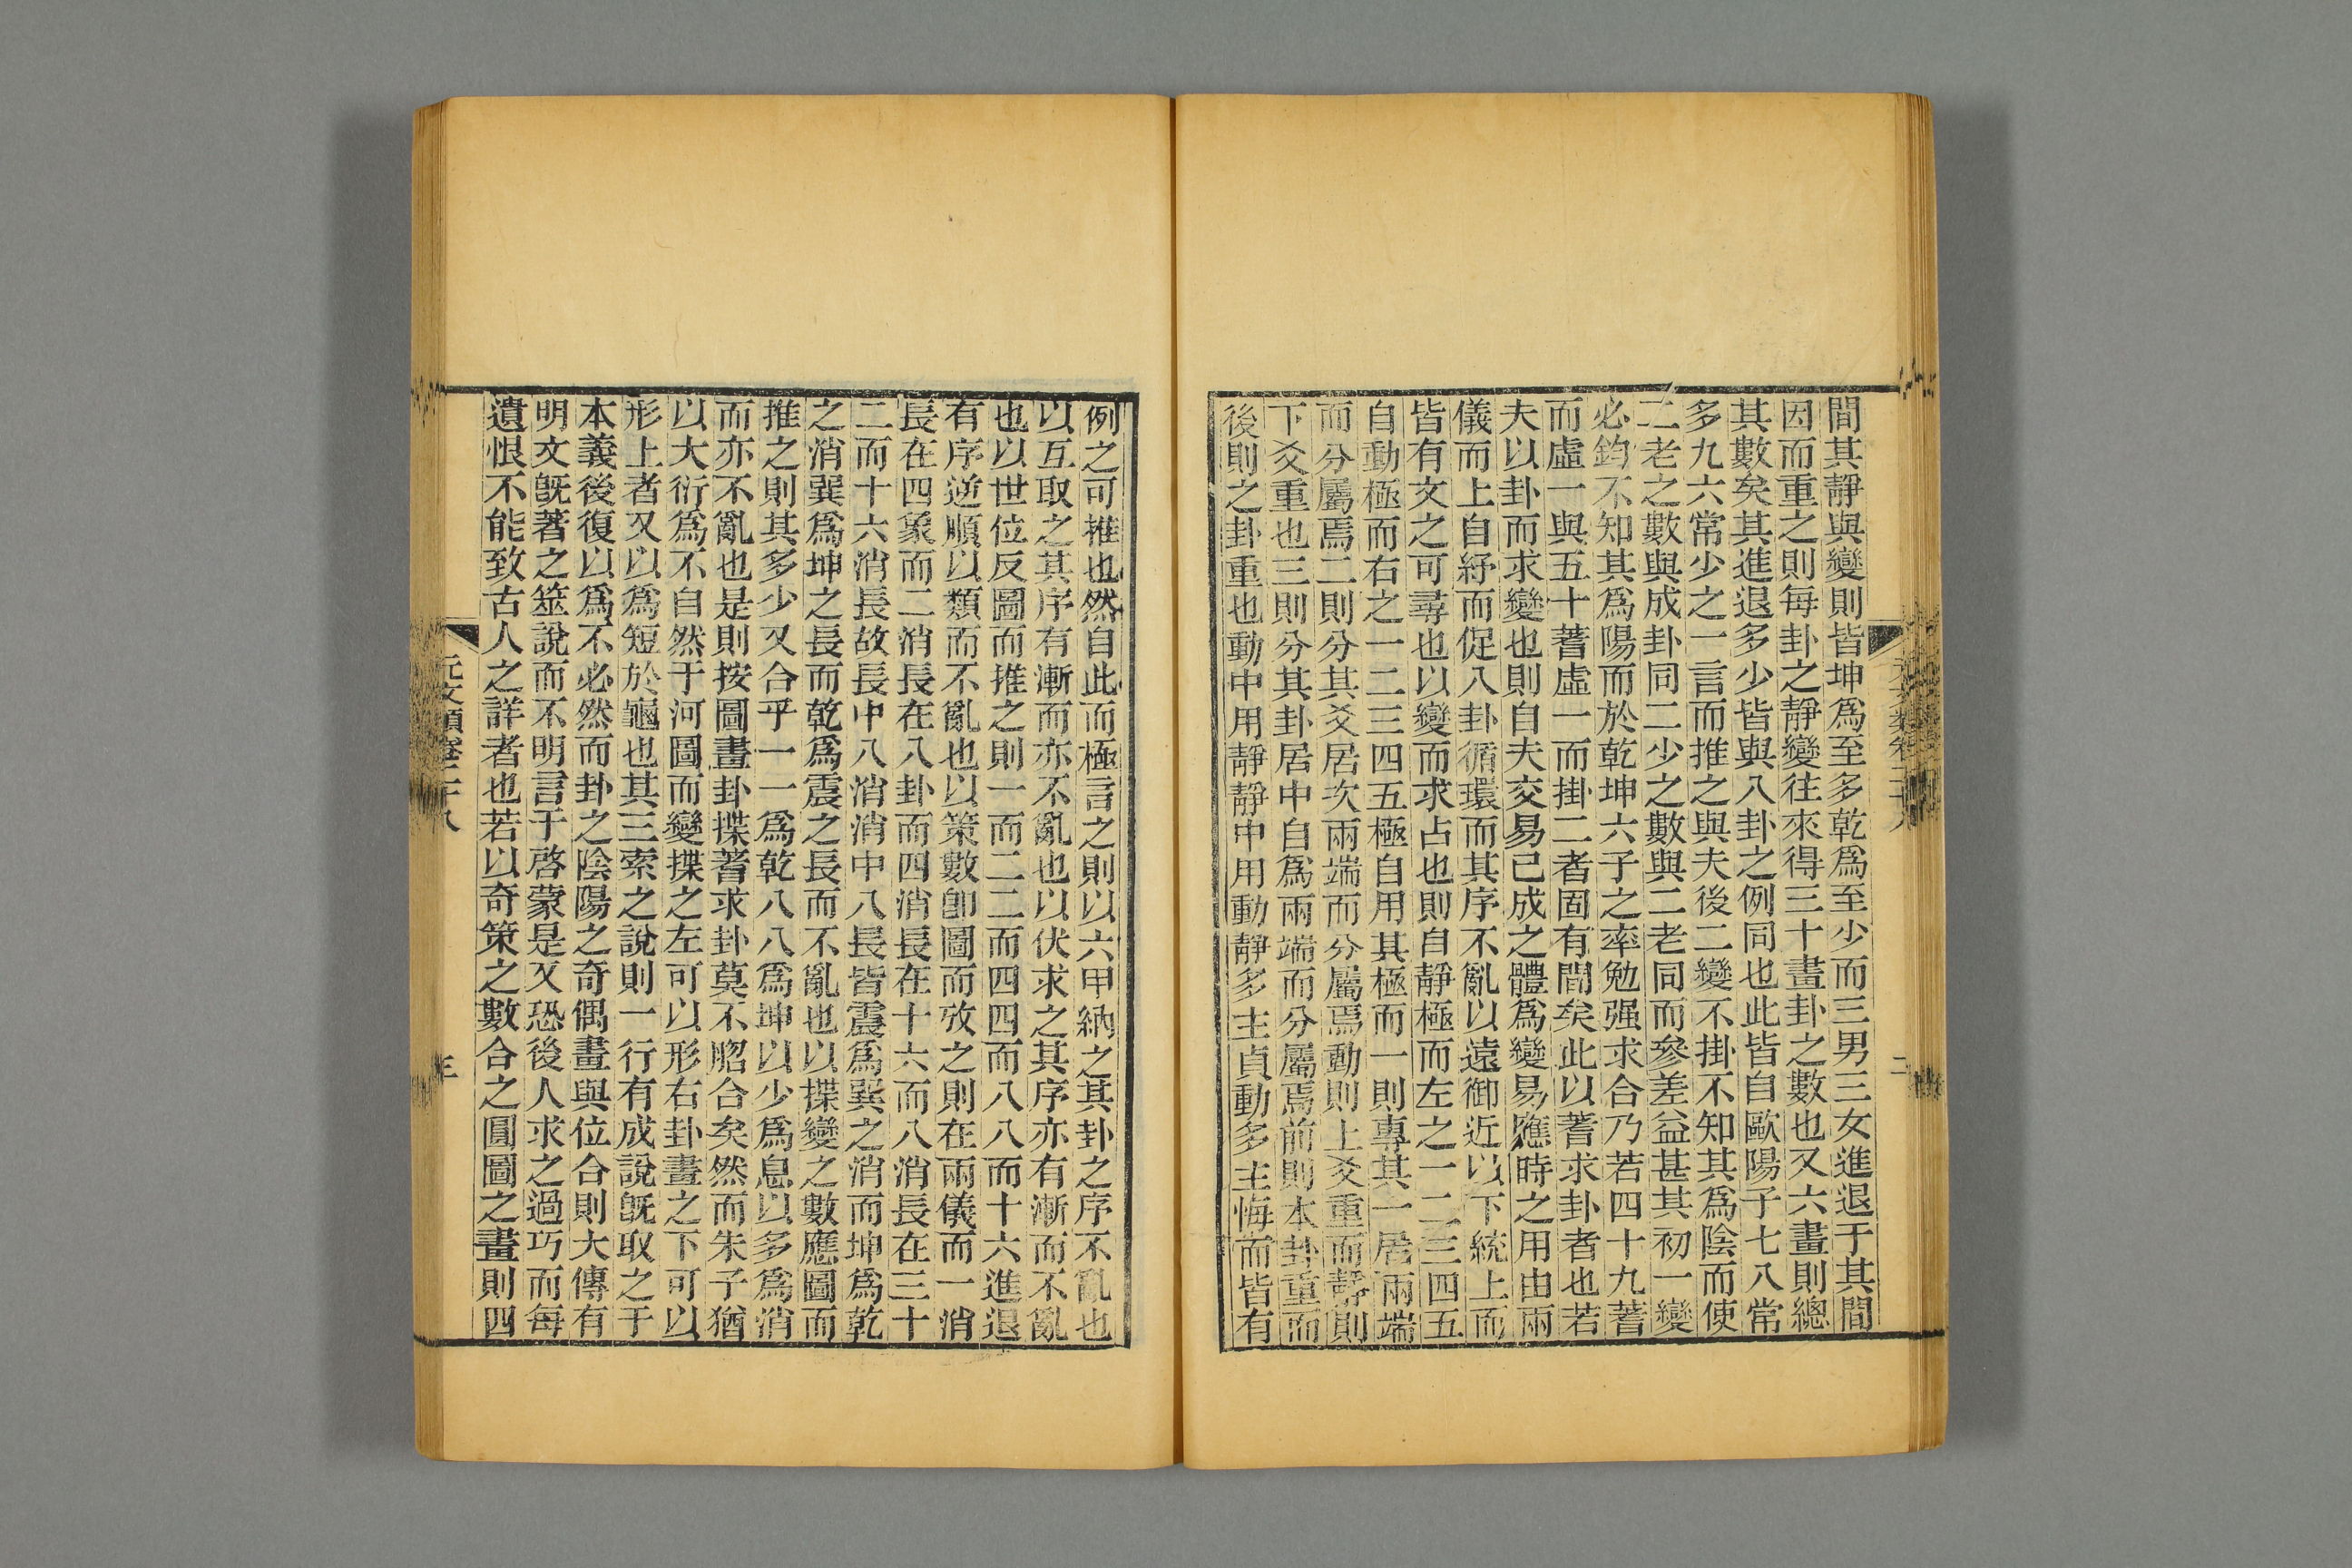 間其靜與變則皆坤爲至多乾爲至少而三男三女進退于其間
因而重之則每卦之靜變往來得三十畫卦之數也又六畫則總
其數矣其進退多少皆與八卦之例同也此皆自歐陽子七八常
多九六常少之一言而推之與夫後二變不掛不知其爲陰而使
二老之數與成卦同二少之數與二老同而參差益甚其初一變
必鈞不知其爲陽而於乾坤六子之率勉强求合乃若四十九蓍
而虛一與五十蓍虛一而掛二者固有間矣此以蓍求卦者也若
夫以卦而求變也則自夫交易已成之體爲變易應時之用由兩
儀而上自紓而促八卦循環而其序不亂以遠御近以下統上而
皆有文之可尋也以變而求占也則自靜極而左之一二三四五
自動極而右之一二三四五極自用其極而一則專其一居兩端
而分屬焉二則分其爻居次兩端而分屬焉動則上爻重而靜則
下爻重也三則分其卦居中自爲兩端而分屬焉前則本卦重而
後則之卦重也動中用靜靜中用動靜多主貞動多主悔而皆有
例之可推也然自此而極言之則以六甲納之其卦之序不亂也
以互取之其序有漸而亦不亂也以伏求之其序亦有漸而不亂
也以世位反圖而推之則一而二二而四四而八八而十六進退
有序逆順以類而不亂也以策數卽圖而攷之則在兩儀而一消
長在四象而二消長在八卦而四消長在十六而八消長在三十
二而十六消長故長中八消消中八長皆震爲巽之消而坤爲乾
之消巽爲坤之長而乾爲震之長而不亂也以揲變之數應圖而
推之則其多少又合乎一一爲乾八八爲坤以少爲息以多爲消
而亦不亂也是則按圖畫卦揲蓍求卦莫不脗合矣然而朱子猶
以大衍爲不自然于河圖而變揲之左可以形右卦畫之下可以
形上者又以爲短於龜也其三索之說則一行有成說旣取之于
本義後復以爲不必然而卦之陰陽之奇偶畫與位合則大傳有
明文旣著之筮說而不明言于啓蒙是又恐後人求之過巧而每
遺恨不能致古人之詳者也若以奇策之數合之圓圖之畫則四
元文類卷三十八
三